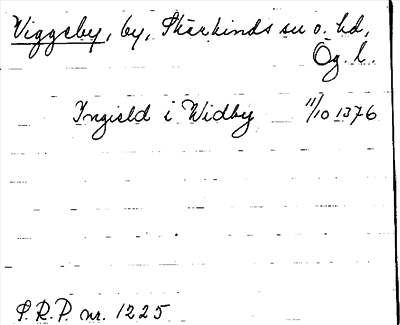 Viggeby, by, Skärkinds sn o. hd,
Ög. l.
Ingield i Widby 11/10 1376
S.R.P. nr. 1225